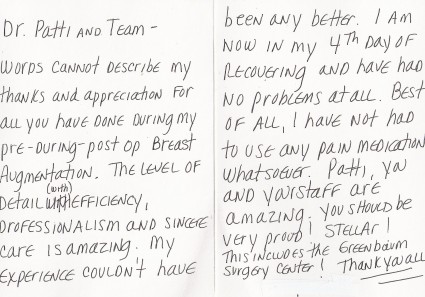 Dr. Patti and Team -
Words cannot describe my
thanks and appreciation for
all you have done during my
pre-during-post op Breast
Augmentation. The level of
detail (with) efficiency,
professionalism and sincere
care is amazing. My
experience couldn't have
been any better. I am
now in my 4th day of
recovering and have had
no problems at all. Best
of all, I have not had
to use any pain medication
whatsoever. Patti, you
and your staff are
amazing. You should be
very proud! Stellar!
This includes the Greenbaum
Surgery Center! Thank you all